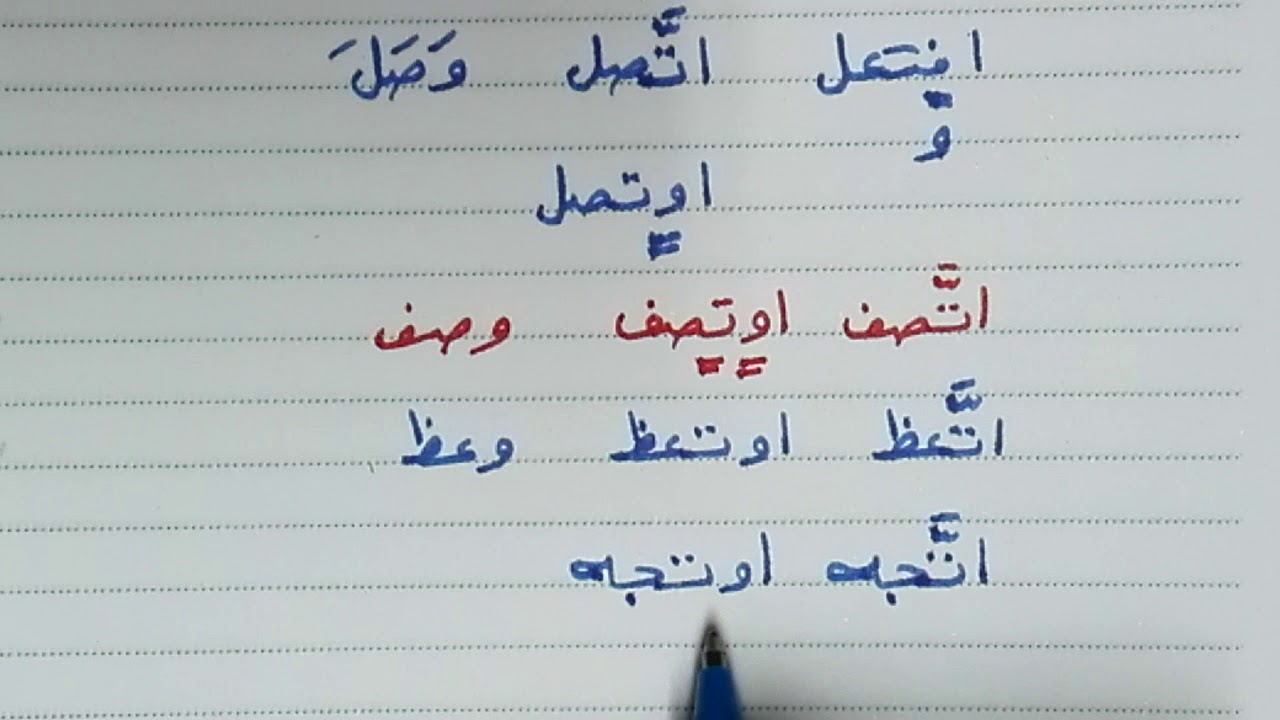 افتعل اتَّصل وَصَلَ
و
اوتصل
اتَّصف اوتصف وصف
اتَّعظ اوتعظ وعظ
اتَّجه اوتجه